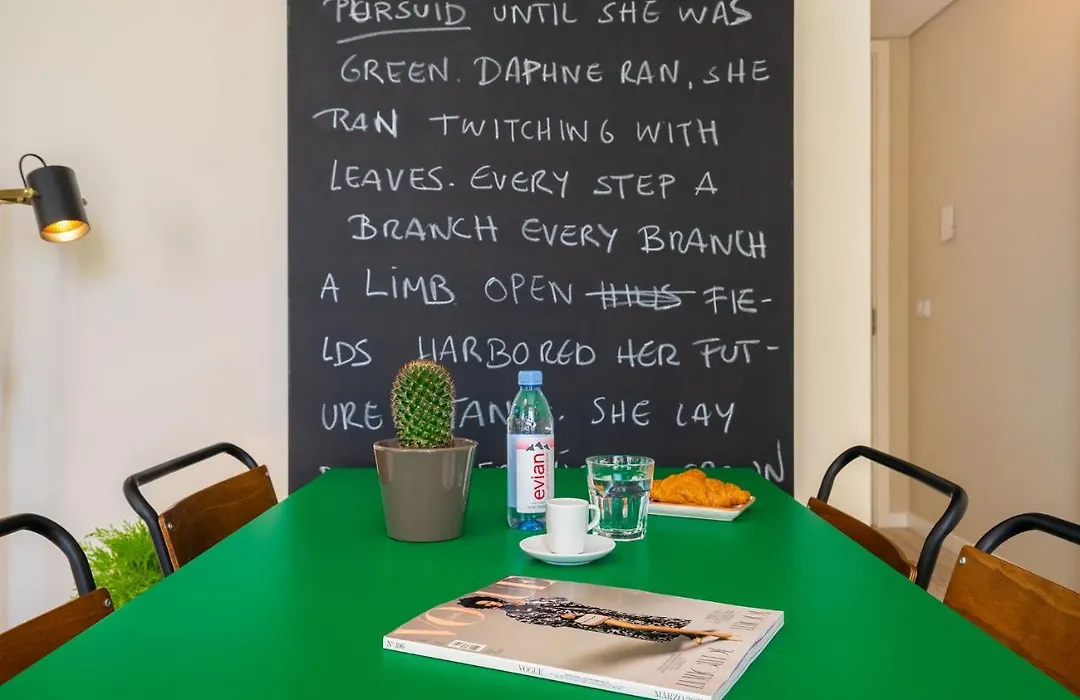 PURSUID UNTIL SHE WAS
GREEN. DAPHNE RAN, SHE
RAN TWITCHING WITH
LEAVES. EVERY STEP A
BRANCH EVERY BRANCH
A LIMB OPEN FIE-
LDS HARBORED HER FUT-
URE TAN SHE LAY
evian
VOGUE
Nº 306
VOGUE
MARZO